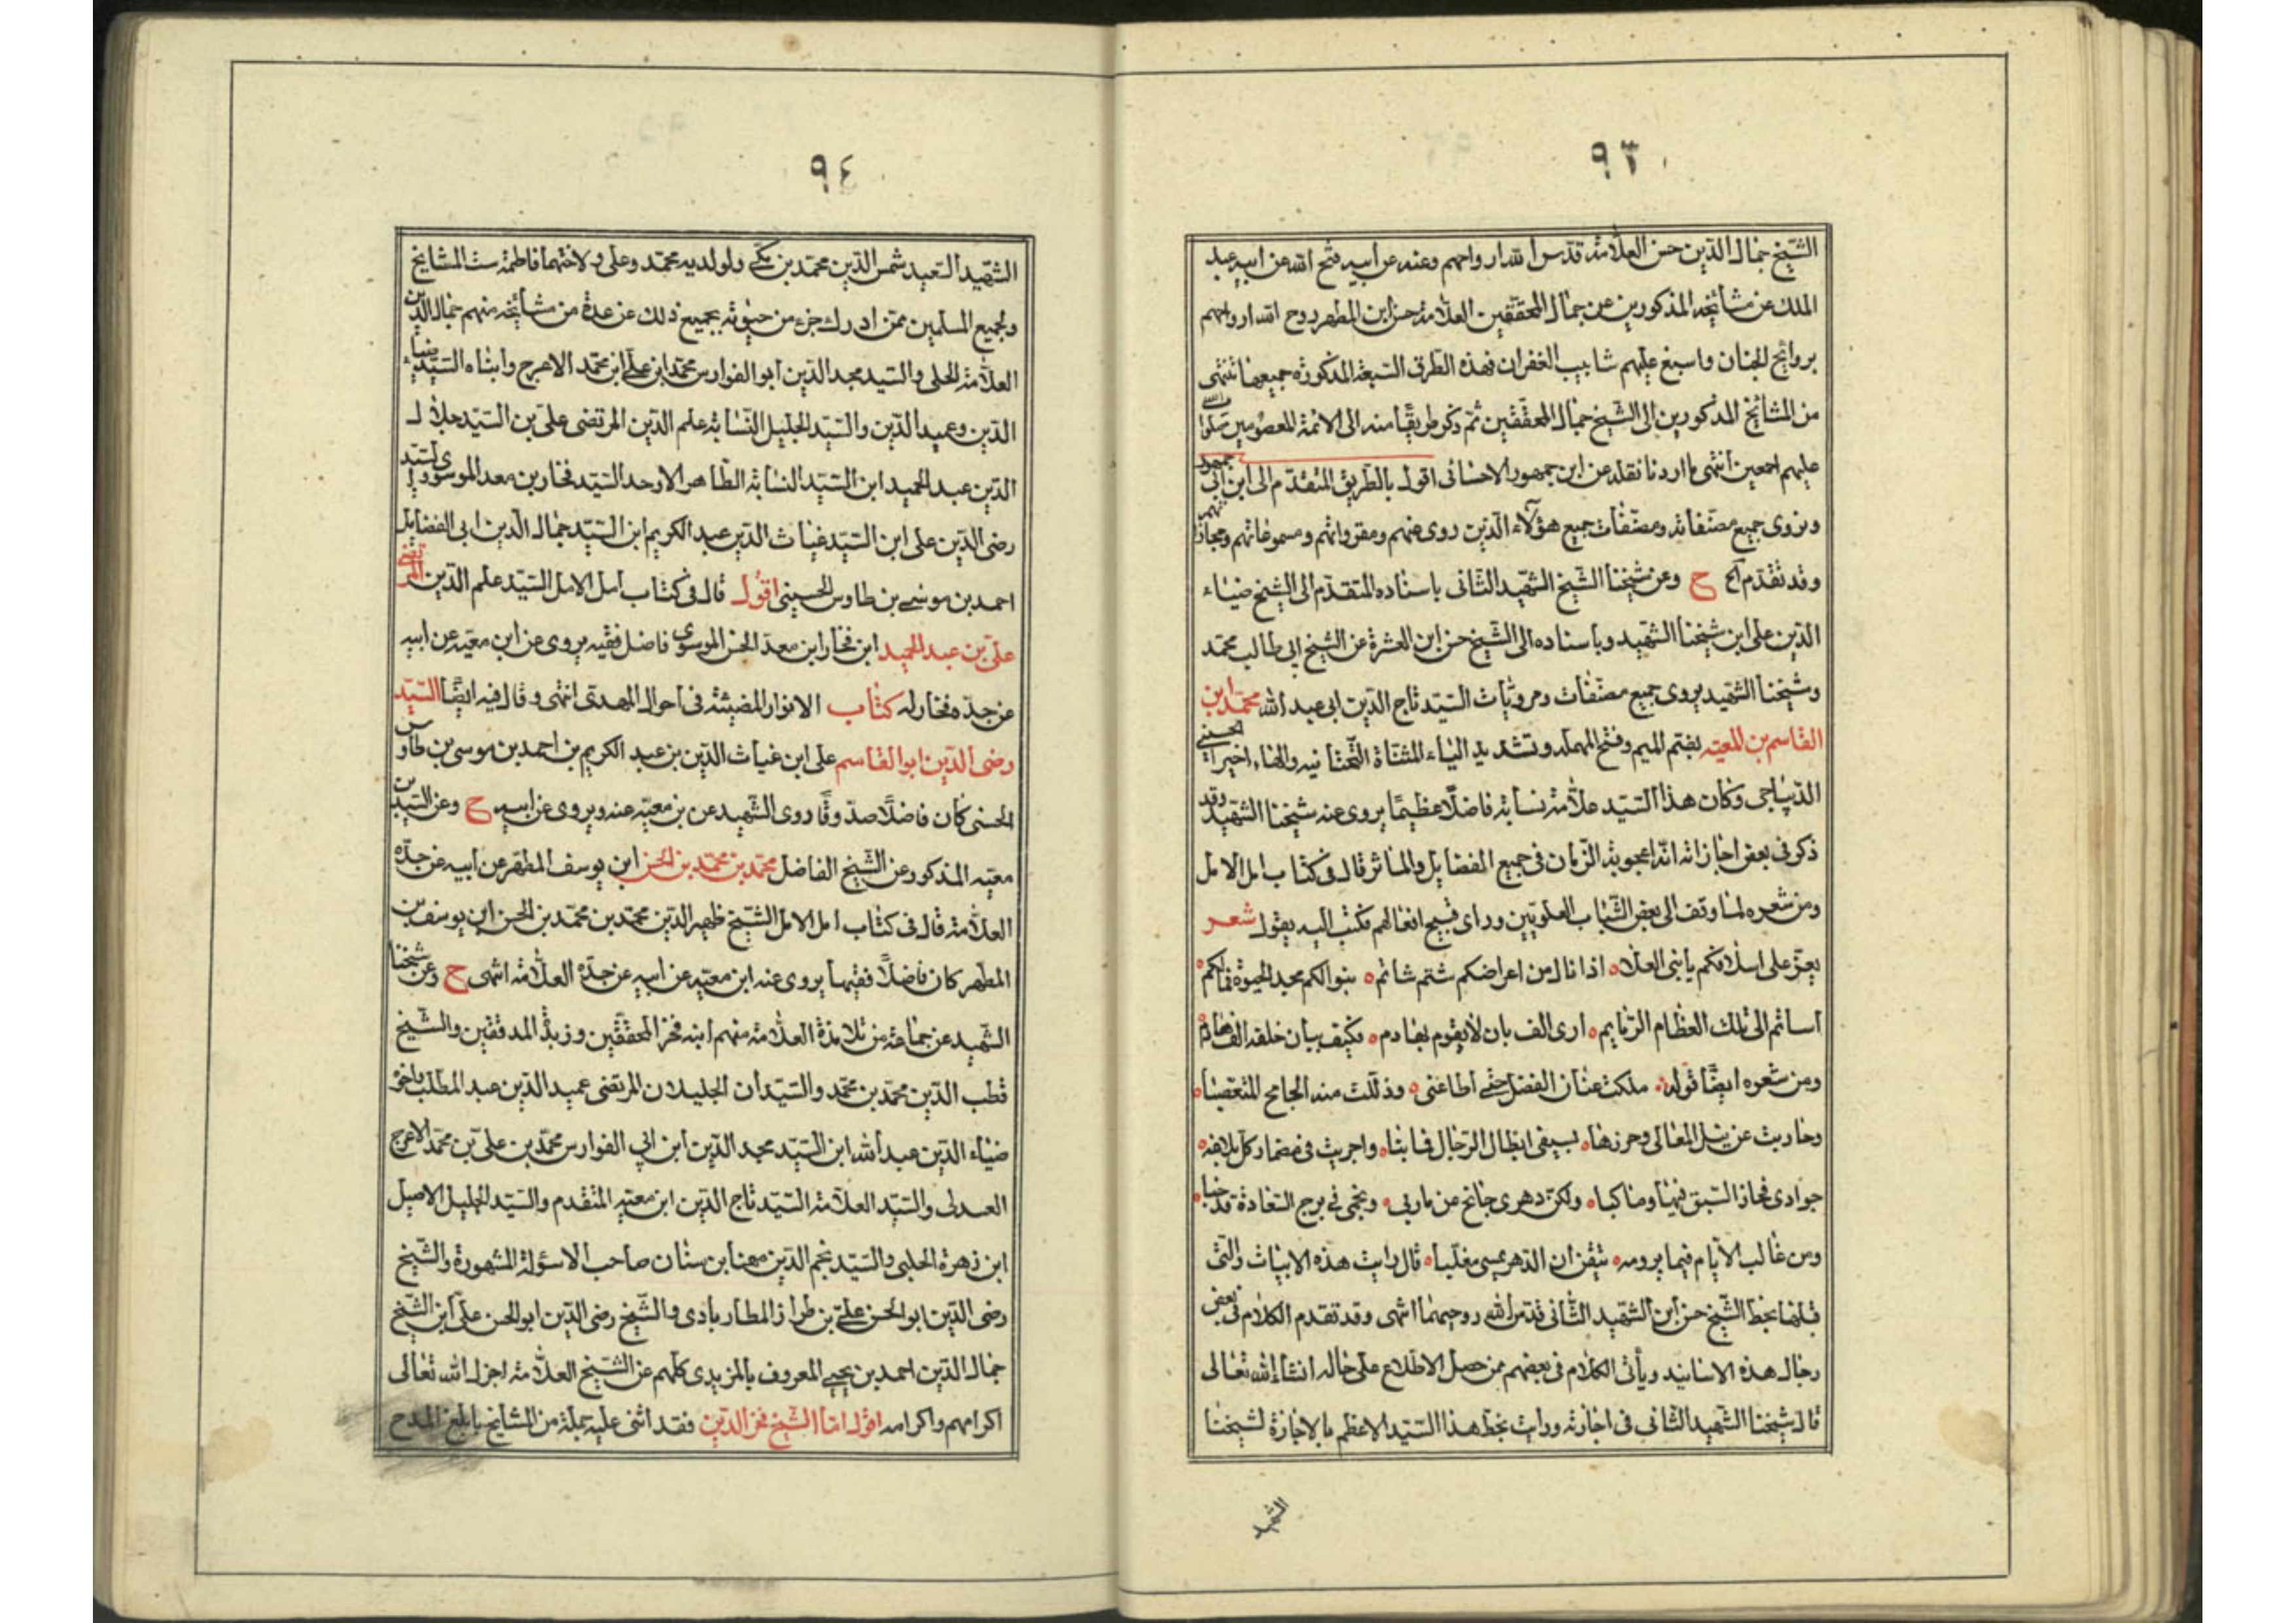 ٩٣
الشيخ جمال الدين حسن العلامة قدس الله ارواحهم وعنه عن ابيه فتح الله عن ابيه عبد
الملك عن مشائخه المذكورين عن جمال المحققين العلامة حسن ابن المطهر روح الله ارواحهم
بروائح الجنان واسبغ عليهم شابيب الغفران فهذه الطرق السبعة المذكورة جميعها تنتهى
من المشائخ المذكورين الى الشيخ جمال المحققين ثم ذكر طريقا منه الى الائمة المعصومين صلوات الله
عليهم اجمعين انتهى ما اردنا نقله عن ابن جمهور الاحسائى اقول بالطريق المتقدم الى ابن ابى جمهور
ونروى جميع مصنفاته ومصنفات جميع هؤلاء الذين روى عنهم ومقرواتهم ومسموعاتهم ومجازاتهم
وقد تقدم الخ ح وعن شيخنا الشيخ الشهيد الثانى باسناده المتقدم الى الشيخ ضياء
الدين على ابن شيخنا الشهيد وباسناده الى الشيخ حسن ابن العشرة عن الشيخ ابى طالب محمد
وشيخنا الشهيد يروى جميع مصنفات ومرويات السيد تاج الدين ابى عبد الله محمد ابن
القاسم بن المعيه بضم الميم وفتح المهمله وتشديد الياء المثناة التحتانيه والهاء اخيرا الحسنى
الديباجى وكان هذا السيد علامة نسابة فاضلا عظيما يروى عنه شيخنا الشهيد وقد
ذكر فى بعض اجازاته انه اعجوبة الزمان فى جميع الفضايل والمآثر قال فى كتاب امل الامل
ومن شعره لما وقف الى بعض الشباب العلويين وراى قبيح افعالهم فكتب اليه يقول شعر
يعز على اسلافكم يا بنى العلاه اذا نال من اعراضكم شتم شاتم ه بنوا لكم مجد الحيوة فما لكم
اساتم الى تلك العظام الرمايم ه ارى الف بان لا يقوم بهادم ه فكيف ببان خلفه الف هادم
ومن شعره ايضا قوله ملكت عنان الفضل حتى اطاعنى ه وذللت منه الجامح المتعصبا
وحاربت عن نيل المعالى وحرزها ه بسيفى ابطال الرجال فما نبا ه واجريت فى مضمار كل بلاغه
جوادى فحاز السبق فيها وما كبا ه ولكن دهرى جانح عن ماربى ه ونجمى فى برج السعادة قد خبا
ومن غالب الايام فيما يرومه ه تيقن ان الدهر يمسى مغلبا ه قال رايت هذه الابيات والتى
قبلها بخط الشيخ حسن ابن الشهيد الثانى قدس الله روحيهما انتهى وقد تقدم الكلام فى بعض
رجال هذه الاسانيد ويأتى الكلام فى بعضهم ممن حصل الاطلاع على حاله انشاء الله تعالى
قال شيخنا الشهيد الثانى فى اجازته ورايت بخط هذا السيد الاعظم ما لاجازة لشيخنا
الشهيد
٩٤
الشهيد السعيد شمس الدين محمد بن مكى ولولديه محمد وعلى ولاختهما فاطمة ست المشايخ
ولجميع المسلمين ممن ادرك جزء من حيوته بجميع ذلك عن عدة من مشائخه منهم جمال الدين
العلامة الحلى والسيد مجد الدين ابو الفوارس محمد ابن على ابن محمد الاعرج وابناه السيد ضياء
الدين وعميد الدين والسيد الجليل النسابة علم الدين المرتضى على بن السيد جلال
الدين عبد الحميد ابن السيد النسابة الطاهر الاوحد السيد فخار بن معد الموسوى والسيد
رضى الدين على ابن السيد غياث الدين عبد الكريم ابن السيد جمال الدين ابى الفضايل
احمد بن موسى بن طاوس الحسينى اقول قال فى كتاب امل الامل السيد علم الدين المرتضى
على بن عبد الحميد ابن فخار ابن معد الحسن الموسوى فاضل فقيه يروى عن ابن معيه عن ابيه
عن جده فخار له كتاب الانوار المضيئة فى احوال المهدى انتهى وقال فيه ايضا السيد
رضى الدين ابو القاسم على ابن غياث الدين بن عبد الكريم بن احمد بن موسى بن طاوس
الحسنى كان فاضلا صدوقا روى الشهيد عن بن معيه عنه ويروى عن ابيه ح وعن السيد بن
معيه المذكور عن الشيخ الفاضل محمد بن محمد بن الحسن ابن يوسف المطهر عن ابيه عن جده
العلامة قال فى كتاب امل الامل الشيخ ظهير الدين محمد بن محمد بن الحسن ابن يوسف بن
المطهر كان فاضلا فقيها يروى عنه ابن معيه عن ابيه عن جده العلامة انتهى ح وعن شيخنا
الشهيد عن جماعة من تلامذة العلامة منهم ابنه فخر المحققين وزبدة المدققين والشيخ
قطب الدين محمد بن محمد والسيدان الجليلان المرتضى عميد الدين عبد المطلب واخو
ضياء الدين عبد الله ابن السيد مجد الدين ابن ابى الفوارس محمد بن على بن محمد الاعرج
العبدلى والسيد العلامة السيد تاج الدين ابن معيه المتقدم والسيد الجليل الاصيل
ابن زهرة الحلبى والسيد نجم الدين مهنا بن سنان صاحب الاسؤلة المشهورة والشيخ
رضى الدين ابو الحسن على بن طراز المطاربادى والشيخ رضى الدين ابو الحسن على ابن الشيخ
جمال الدين احمد بن يحيى المعروف بالمزيدى كلهم عن الشيخ العلامة اجزل الله تعالى
اكرامهم واكرامه اقول اما الشيخ فخر الدين فقد اثنى عليه جملة من المشايخ بابلغ المدح